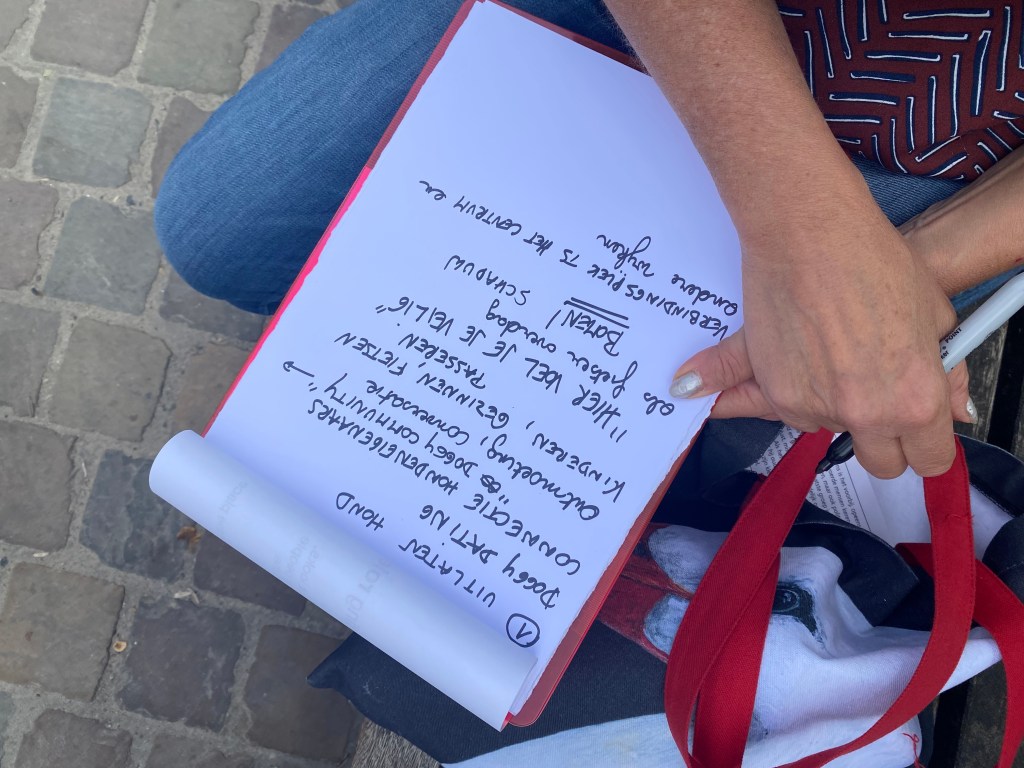 ① UITLATEN HOND
DOGGY DATING
CONNECTIE HONDENEIGENAARS
"DS DOGGY COMMUNITY" →
Ontmoeting, conversatie
KINDEREN, GEZINNEN, FIETSEN
PASSEREN
"HIER VOEL JE JE VEILIG"
als fietser overdag
BOMEN! SCHADUW
VERBINDINGSPLEK TS HET CENTRUM en
andere wijken